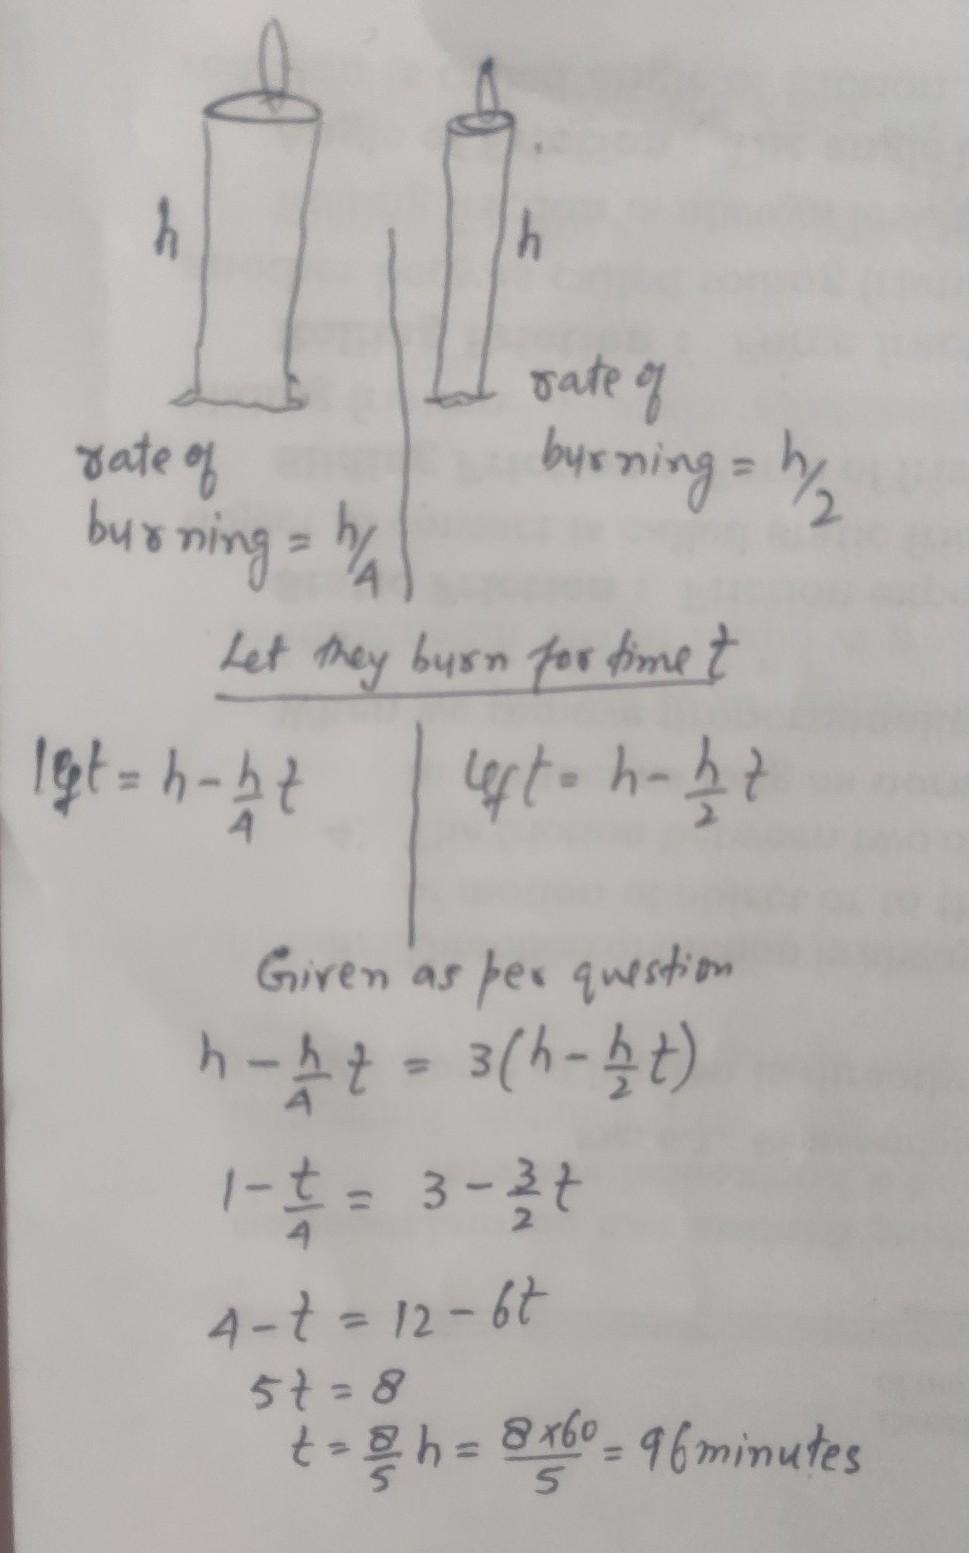 h
h
rate of
burning = h/4
rate of
burning = h/2
Let they burn for time t
left = h - h/4 t
left = h - h/2 t
Given as per question
h - h/4 t = 3(h - h/2 t)
1 - t/4 = 3 - 3/2 t
4 - t = 12 - 6t
5t = 8
t = 8/5 h = 8×60/5 = 96 minutes